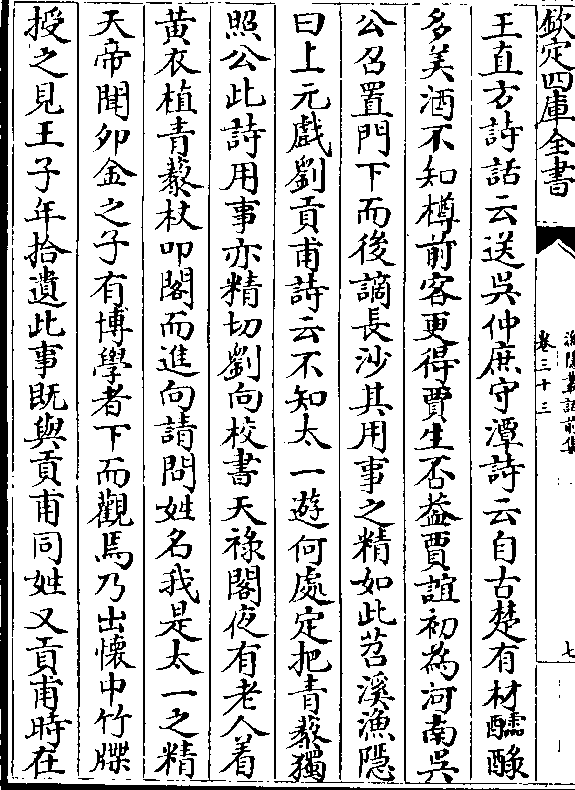 欽定四庫全書
漁隱叢話前集
卷三十三
七
王直方詩話云送吳仲庶守潭詩云自古楚有材醽醁
多美酒不知樽前客更得賈生否葢賈誼初為河南吳
公召置門下而後謫長沙其用事之精如此苕溪漁隱
曰上元戲劉貢甫詩云不知太一遊何處定把青藜獨
照公此詩用事亦精切劉向校書天禄閣夜有老人着
黄衣植青藜杖叩閣而進向請問姓名我是太一之精
天帝聞夘金之子有博學者下而觀焉乃出懐中竹牒
授之見王子年拾遺此事既與貢甫同姓又貢甫時在